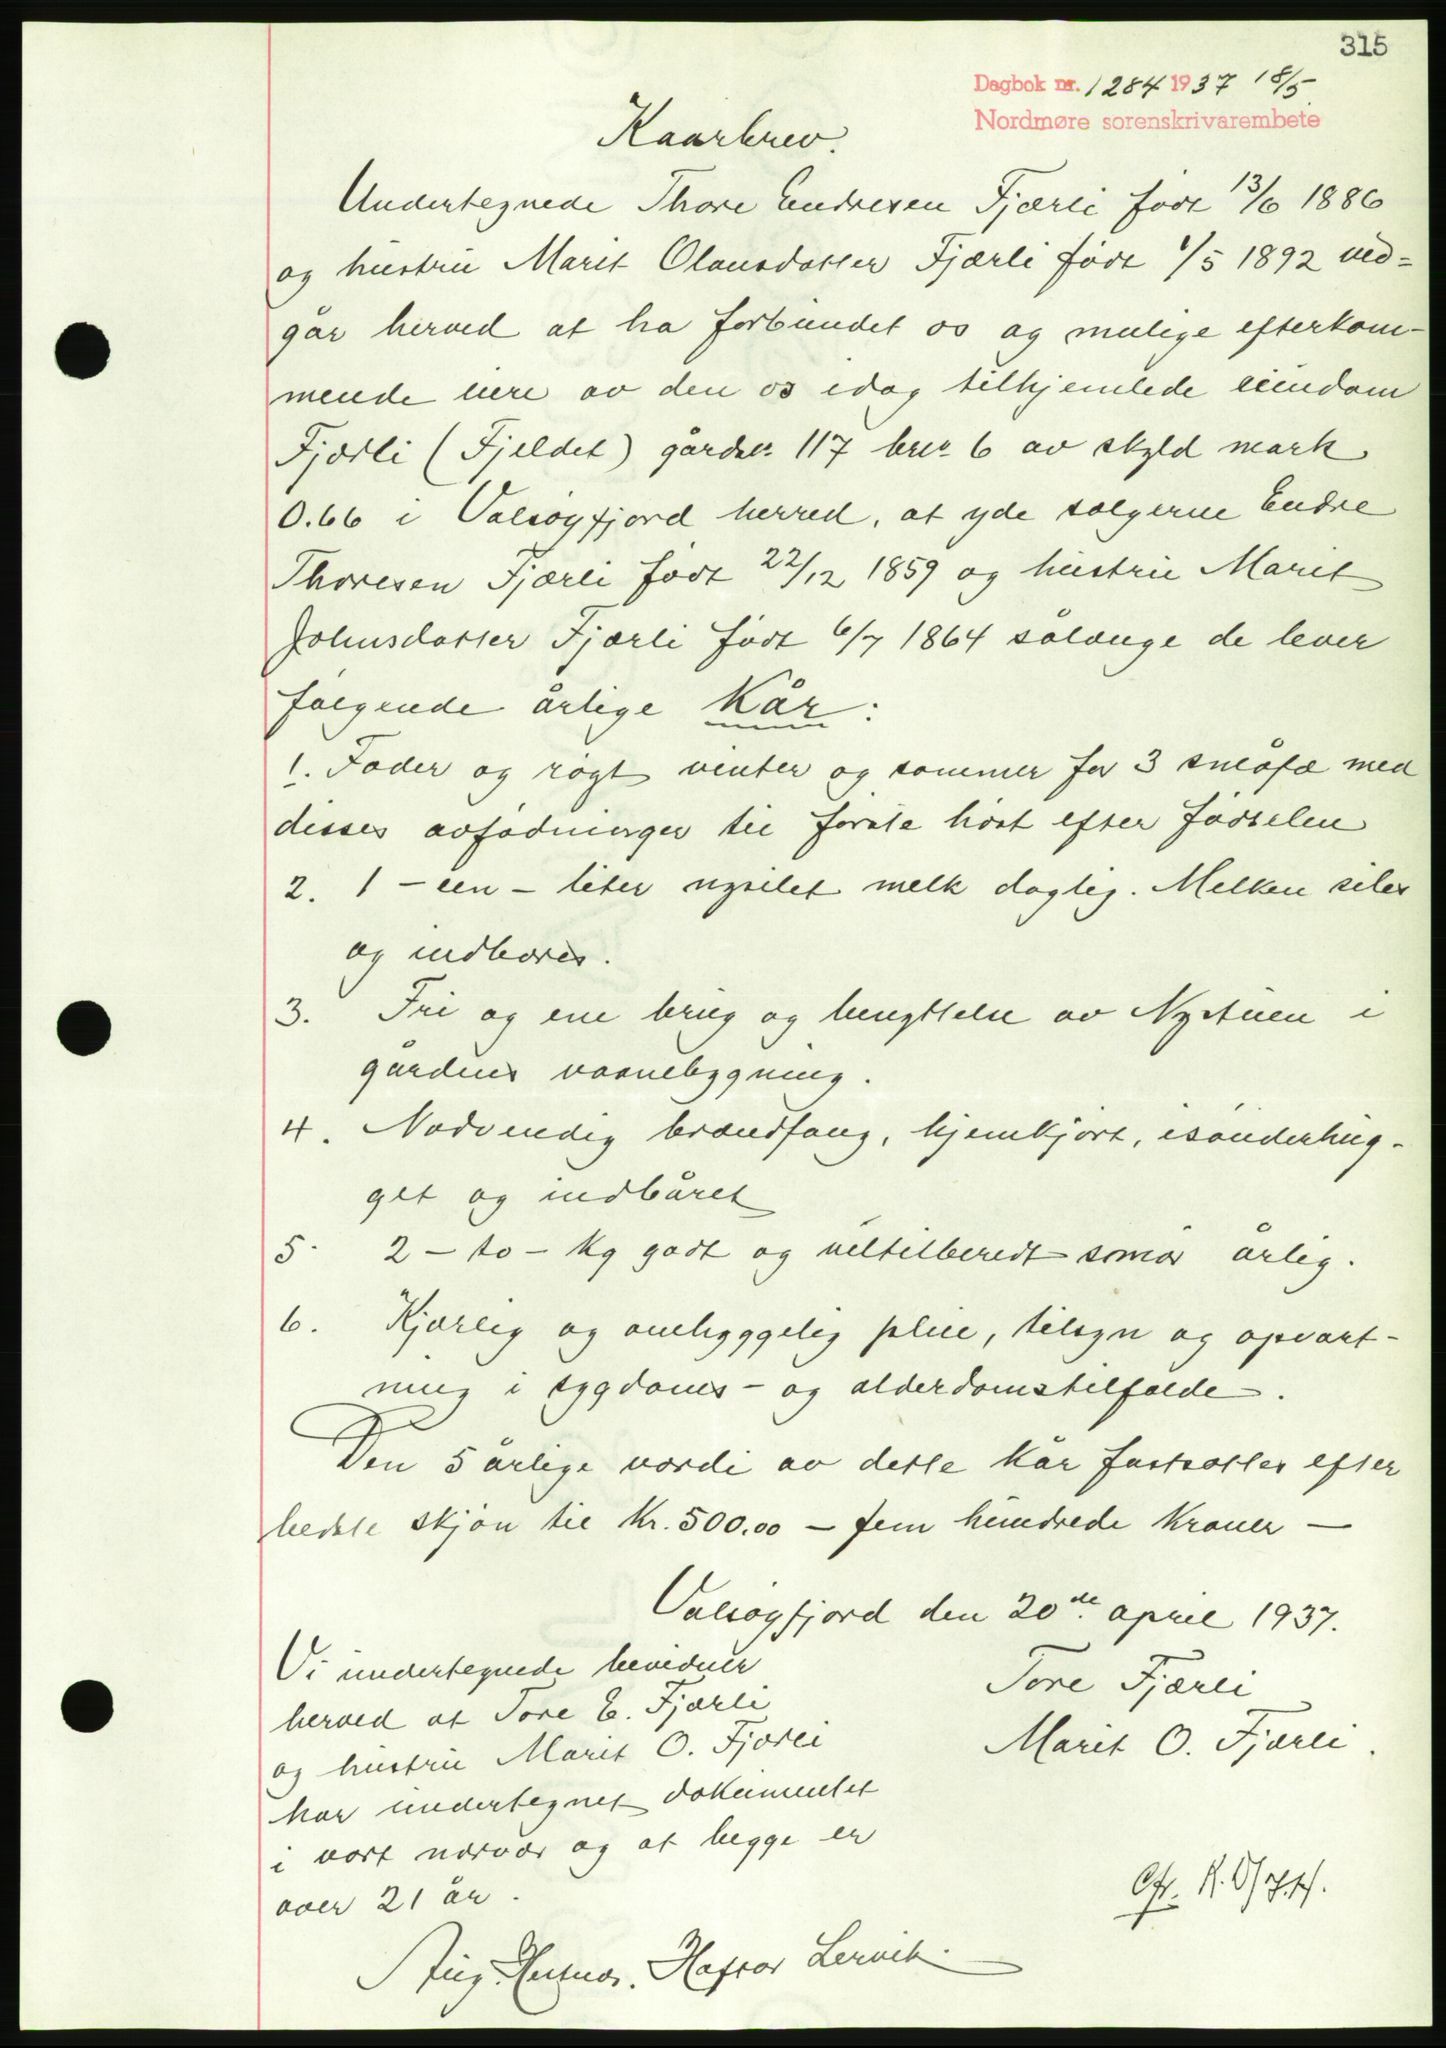 315
Dagbok nr. 1284 1937 18/5
Nordmøre sorenskrivarembete
Kaarbrev.
Undertegnede Thore Endresen Fjærli født 13/6 1886
og hustru Marit Olausdatter Fjærli født 1/5 1892 ved=
går herved at ha forbundet os og mulige efterkom-
mende eiere av den os idag tilhjemlede eiendom
Fjærli (Fjeldet) gårdsnr. 117 brnr. 6 av skyld mark
0.66 i Valsøyfjord herred, at yde selgerne Endre
Thoresen Fjærli født 22/12 1859 og hustru Marit
Johnsdatter Fjærli født 6/7 1864 sålænge de lever
følgende årlige Kår:
1. Foder og røgt vinter og sommer for 3 småfæ med
disses avfødninger til første høst efter fødselen
2. 1 – een – liter nysilet melk daglig. Melken siles
og indbæres.
3. Fri og ene brug og benyttelse av Nystuen i
gårdens vaanebygning.
4. Nødvendig brændfang, hjemkjørt, isønderhug-
get og indbåret
5. 2 – to – kg godt og veltilberedt smør årlig.
6. Kjærlig og omhyggelig pleie, tilsyn og opvart-
ning i sygdoms- og alderdomstilfælde.
Den 5 årlige værdi av dette kår fastsættes efter
bedste skjøn til Kr. 500.00 – fem hundrede kroner –
Valsøyfjord den 20de april 1937.
Vi undertegnede bevidner
herved at Tore E. Fjærli
og hustru Marit O. Fjærli
har undertegnet dokumentet
i vort nærvær og at begge er
over 21 år.
Tore Fjærli
Marit O. Fjærli.
Hafstor Lervik.